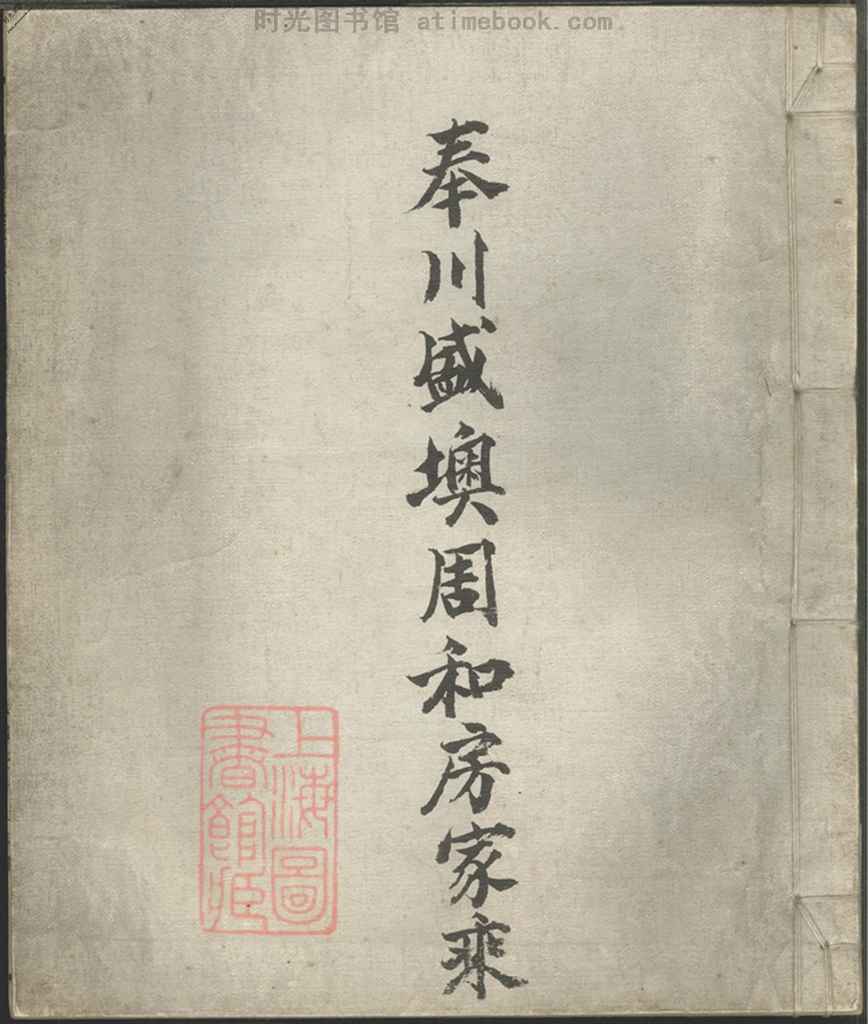 时光图书馆 atimebook.com
奉川盛墺周和房家乘
上海圖
書館藏